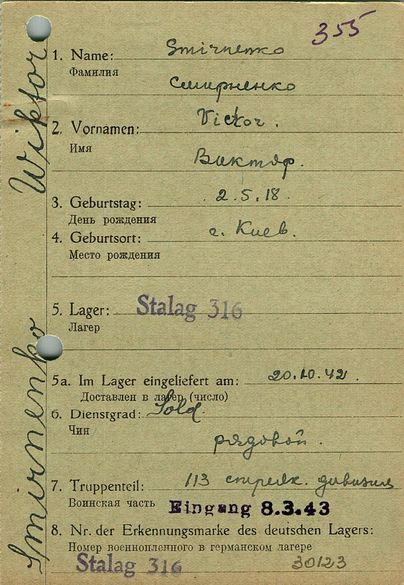 355
1. Name: Smirnenko
Фамилия
Смирненко
2. Vornamen: Victor.
Имя
Виктор.
3. Geburtstag: 2.5.18.
День рождения
4. Geburtsort: г. Киев.
Место рождения
5. Lager: Stalag 316
Лагерь
5a. Im Lager eingeliefert am: 20.10.42
Доставлен в лагерь (число)
6. Dienstgrad: Sold.
Чин
рядовой.
7. Truppenteil: 113 стрелк. дивизия
Воинская часть Eingang 8.3.43
8. Nr. der Erkennungsmarke des deutschen Lagers:
Номер военнопленного в германском лагере
Stalag 316 30123
Smirnenko Wiktor